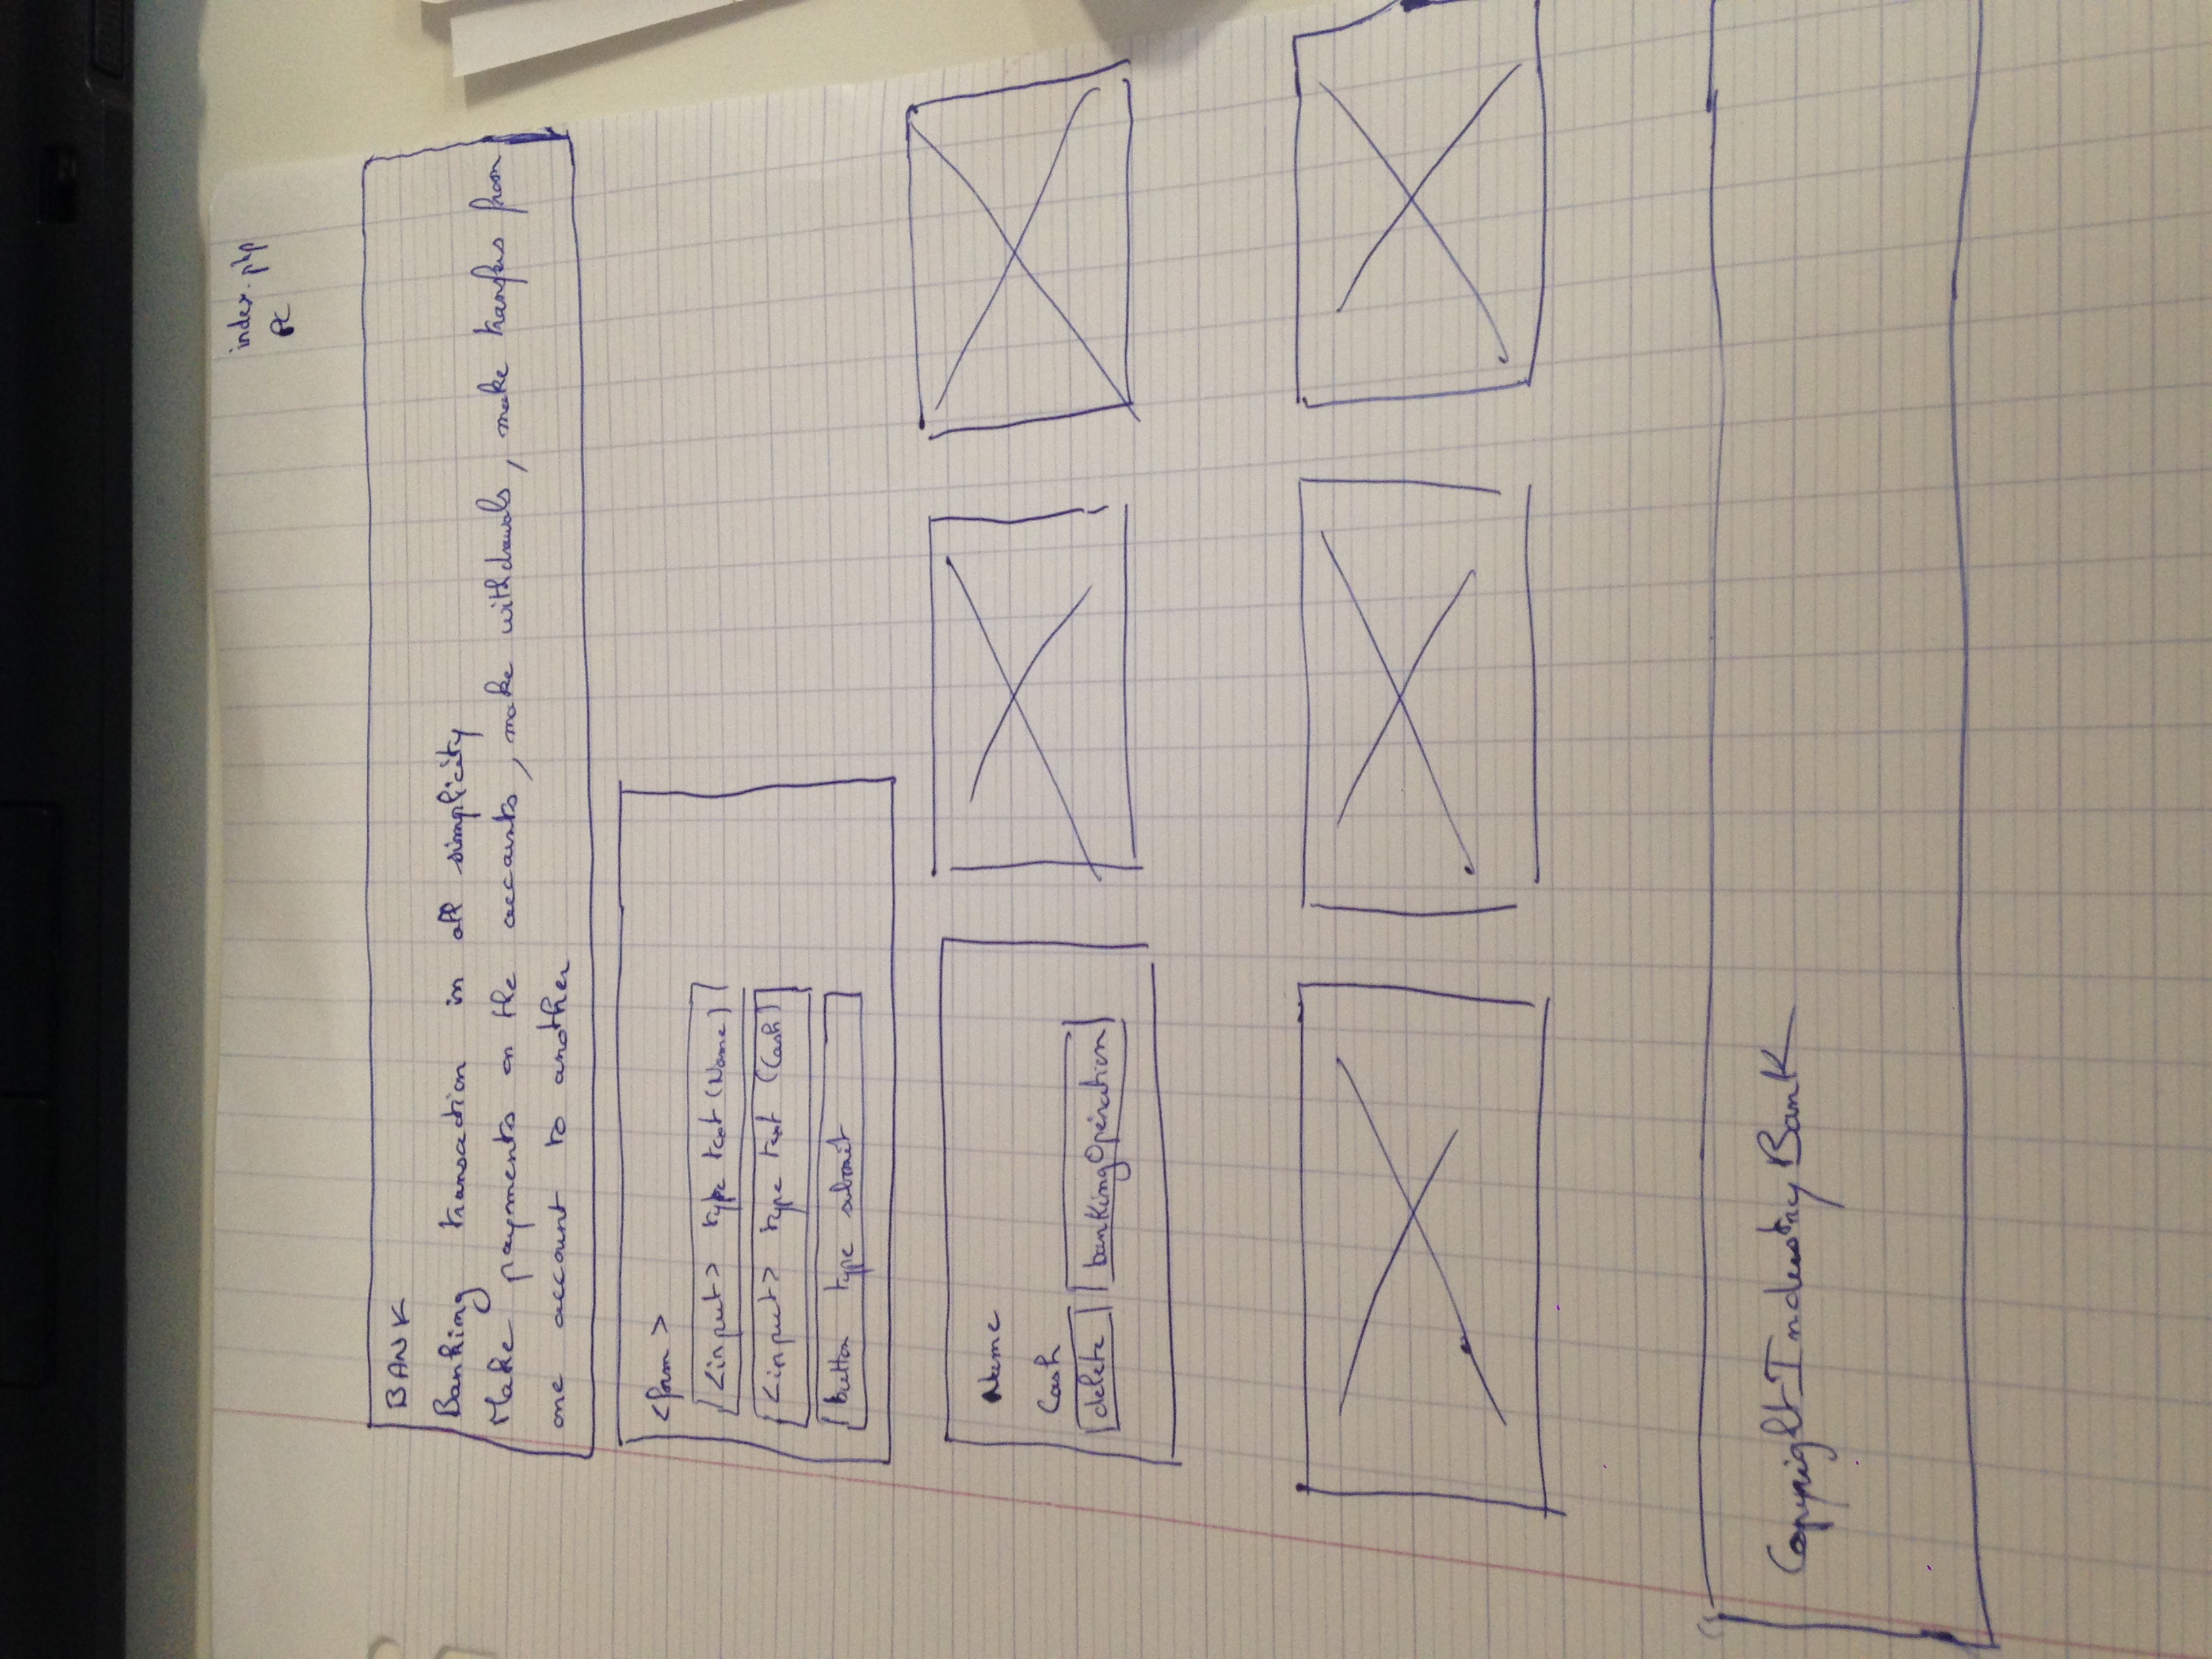 index.php
PC
BANK
Banking transaction in all simplicity
Make payments on the accounts, make withdrawals, make transfers from
one account to another
<form>
<input> type text (Name)
<input> type text (Cash)
button type submit
Name
Cash
delete bankingOperation
Copyright Industry Bank